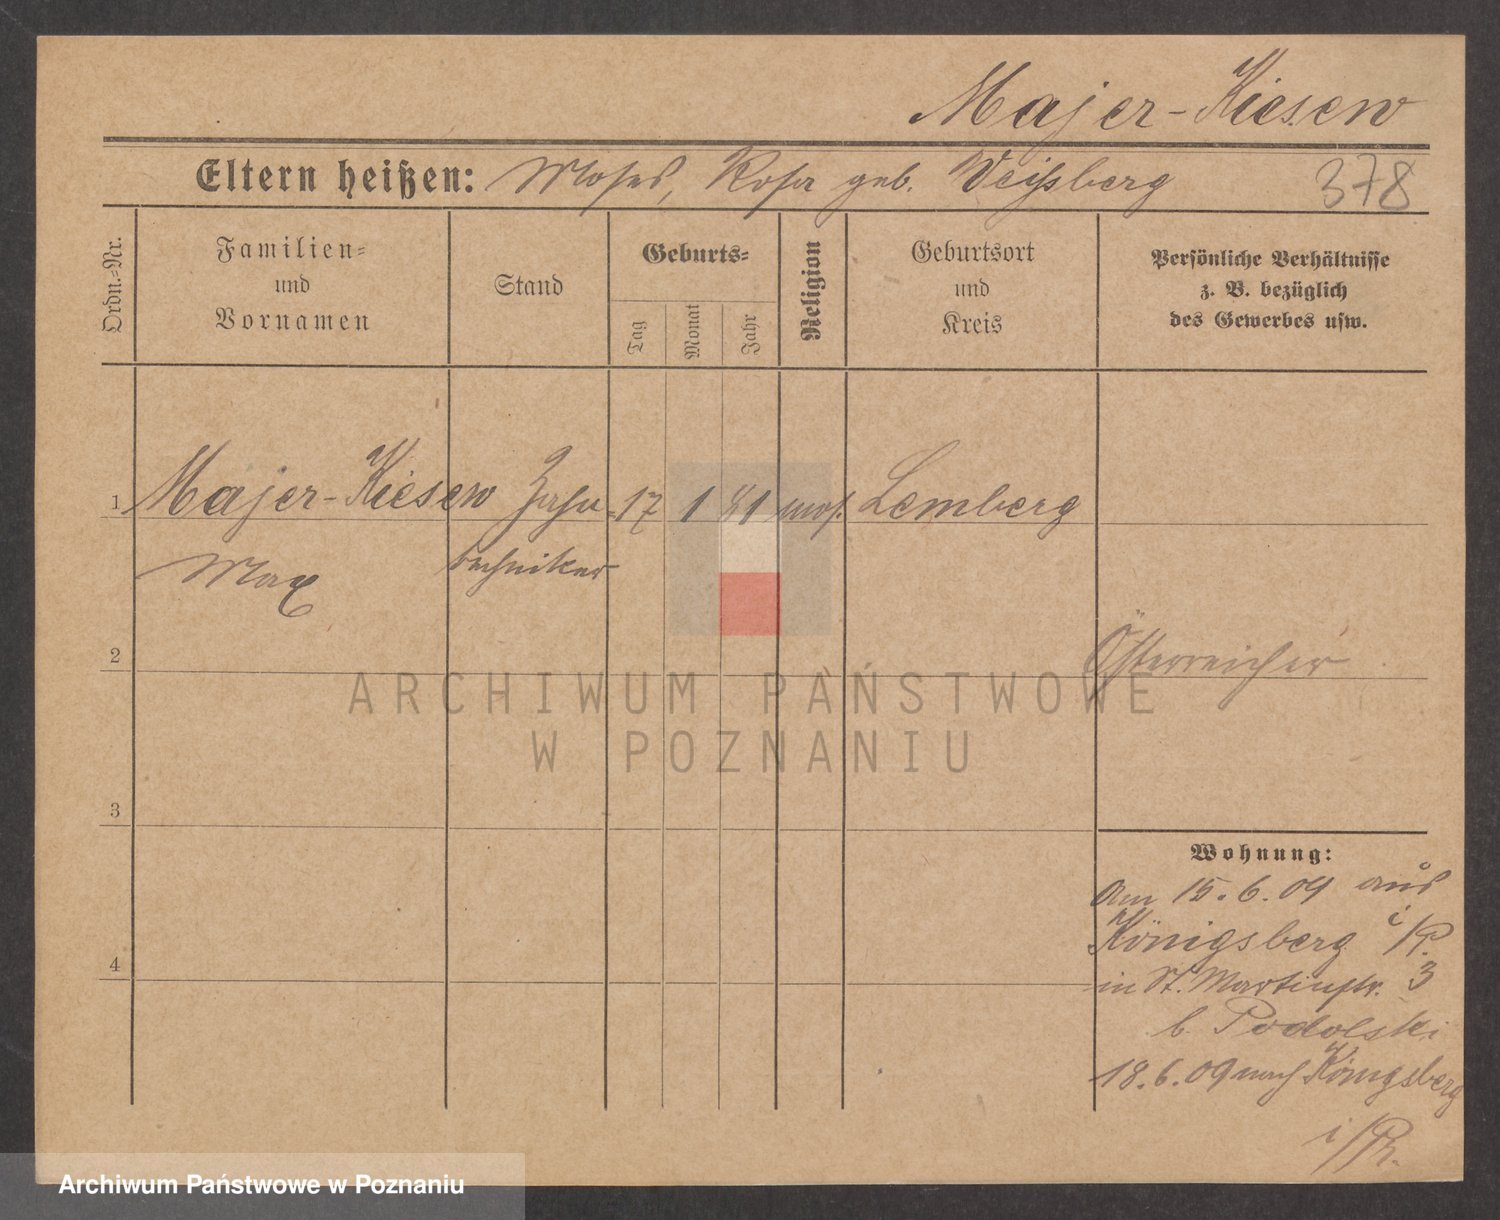 Majer-Kiesew
Eltern heißen: Moses, Rosa geb. Weißberg
378
Ordn.=Nr.
Familien=
und
Vornamen
Stand
Geburts=
Tag
Monat
Jahr
Religion
Geburtsort
und
Kreis
Persönliche Verhältnisse
z. B. bezüglich
des Gewerbes usw.
1 Majer-Kiesew Zahn- 17 1 81 mos. Lemberg
Max techniker
2
Österreicher
3
Wohnung:
Am 15.6.09 aus
Königsberg i/P.
in St. Martinstr. 3
b. Podolski
4
18.6.09 nach Königsberg
i/Pr.
ARCHIWUM PAŃSTWOWE
W POZNANIU
Archiwum Państwowe w Poznaniu